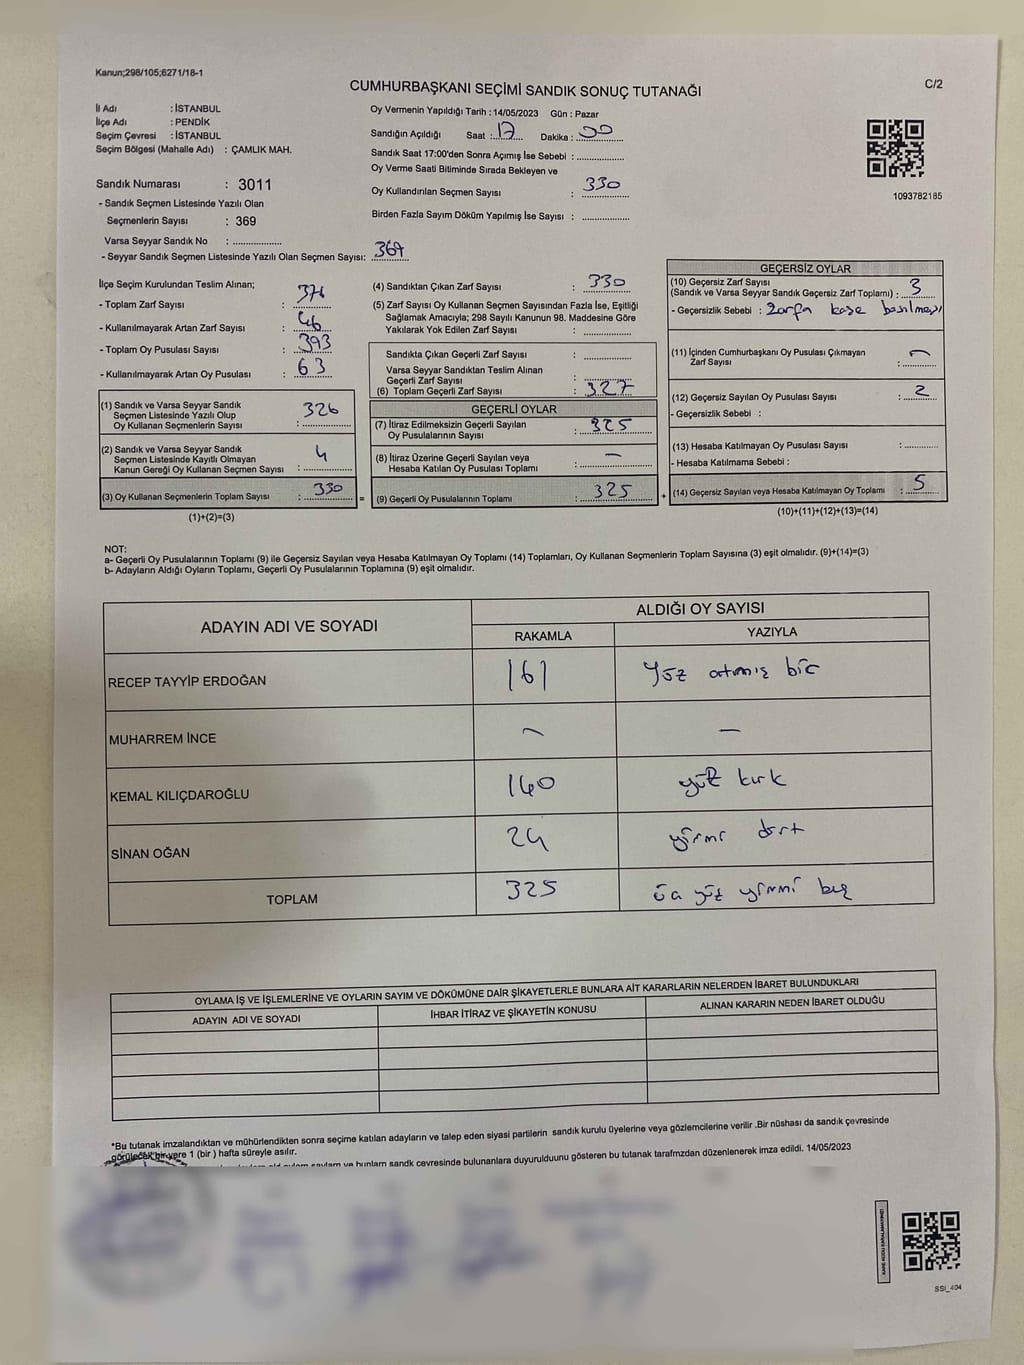 Kanun;298/105;6271/18-1
CUMHURBAŞKANI SEÇİMİ SANDIK SONUÇ TUTANAĞI
C/2
İl Adı : İSTANBUL
İlçe Adı : PENDİK
Seçim Çevresi : İSTANBUL
Seçim Bölgesi (Mahalle Adı) : ÇAMLIK MAH.
Sandık Numarası : 3011
- Sandık Seçmen Listesinde Yazılı Olan
Seçmenlerin Sayısı : 369
Varsa Seyyar Sandık No : ....................
- Seyyar Sandık Seçmen Listesinde Yazılı Olan Seçmen Sayısı: 369
Oy Vermenin Yapıldığı Tarih : 14/05/2023 Gün : Pazar
Sandığın Açıldığı Saat : 17 Dakika : 00
Sandık Saat 17:00'den Sonra Açımış İse Sebebi : ...............
Oy Verme Saati Bitiminde Sırada Bekleyen ve
Oy Kullandırılan Seçmen Sayısı : 330
Birden Fazla Sayım Döküm Yapılmış İse Sayısı : ...............
1093782185
İlçe Seçim Kurulundan Teslim Alınan;
- Toplam Zarf Sayısı : 376
- Kullanılmayarak Artan Zarf Sayısı : 46
- Toplam Oy Pusulası Sayısı : 393
- Kullanılmayarak Artan Oy Pusulası : 63
(1) Sandık ve Varsa Seyyar Sandık
Seçmen Listesinde Yazılı Olup
Oy Kullanan Seçmenlerin Sayısı : 326
(2) Sandık ve Varsa Seyyar Sandık
Seçmen Listesinde Kayıtlı Olmayan
Kanun Gereği Oy Kullanan Seçmen Sayısı : 4
(3) Oy Kullanan Seçmenlerin Toplam Sayısı : 330
(1)+(2)=(3)
=
(4) Sandıktan Çıkan Zarf Sayısı : 330
(5) Zarf Sayısı Oy Kullanan Seçmen Sayısından Fazla İse, Eşitliği
Sağlamak Amacıyla; 298 Sayılı Kanunun 98. Maddesine Göre
Yakılarak Yok Edilen Zarf Sayısı : ...............
Sandıkta Çıkan Geçerli Zarf Sayısı : ...............
Varsa Seyyar Sandıktan Teslim Alınan
Geçerli Zarf Sayısı : ...............
(6) Toplam Geçerli Zarf Sayısı : 327
GEÇERLİ OYLAR
(7) İtiraz Edilmeksizin Geçerli Sayılan
Oy Pusulalarının Sayısı : 325
(8) İtiraz Üzerine Geçerli Sayılan veya
Hesaba Katılan Oy Pusulası Toplamı : —
(9) Geçerli Oy Pusulalarının Toplamı : 325
+
GEÇERSİZ OYLAR
(10) Geçersiz Zarf Sayısı
(Sandık ve Varsa Seyyar Sandık Geçersiz Zarf Toplamı) : 3
- Geçersizlik Sebebi : Zarfa kase basılmayı
(11) İçinden Cumhurbaşkanı Oy Pusulası Çıkmayan
Zarf Sayısı : —
(12) Geçersiz Sayılan Oy Pusulası Sayısı : 2
- Geçersizlik Sebebi :
(13) Hesaba Katılmayan Oy Pusulası Sayısı : ..........
- Hesaba Katılmama Sebebi :
(14) Geçersiz Sayılan veya Hesaba Katılmayan Oy Toplamı : 5
(10)+(11)+(12)+(13)=(14)
NOT:
a- Geçerli Oy Pusulalarının Toplamı (9) ile Geçersiz Sayılan veya Hesaba Katılmayan Oy Toplamı (14) Toplamları, Oy Kullanan Seçmenlerin Toplam Sayısına (3) eşit olmalıdır. (9)+(14)=(3)
b- Adayların Aldığı Oyların Toplamı, Geçerli Oy Pusulalarının Toplamına (9) eşit olmalıdır.
ADAYIN ADI VE SOYADI ALDIĞI OY SAYISI
RAKAMLA YAZIYLA
RECEP TAYYİP ERDOĞAN 161 Yüz atmış bir
MUHARREM İNCE — —
KEMAL KILIÇDAROĞLU 140 yüz kırk
SİNAN OĞAN 24 yirmi dört
TOPLAM 325 üç yüz yirmi beş
OYLAMA İŞ VE İŞLEMLERİNE VE OYLARIN SAYIM VE DÖKÜMÜNE DAİR ŞİKAYETLERLE BUNLARA AİT KARARLARIN NELERDEN İBARET BULUNDUKLARI
ADAYIN ADI VE SOYADI İHBAR İTİRAZ VE ŞİKAYETİN KONUSU ALINAN KARARIN NEDEN İBARET OLDUĞU
*Bu tutanak imzalandıktan ve mühürlendikten sonra seçime katılan adayların ve talep eden siyasi partilerin sandık kurulu üyelerine veya gözlemcilerine verilir .Bir nüshası da sandık çevresinde
görülecek bir yere 1 (bir ) hafta süreyle asılır.
sandık çevresinde bulunanlara duyurulduunu gösteren bu tutanak tarafmzdan düzenlenerek imza edildi. 14/05/2023
SSI_404